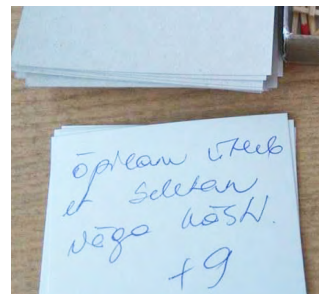 õpilane ütleb
et seletan
väga hästi.
+9